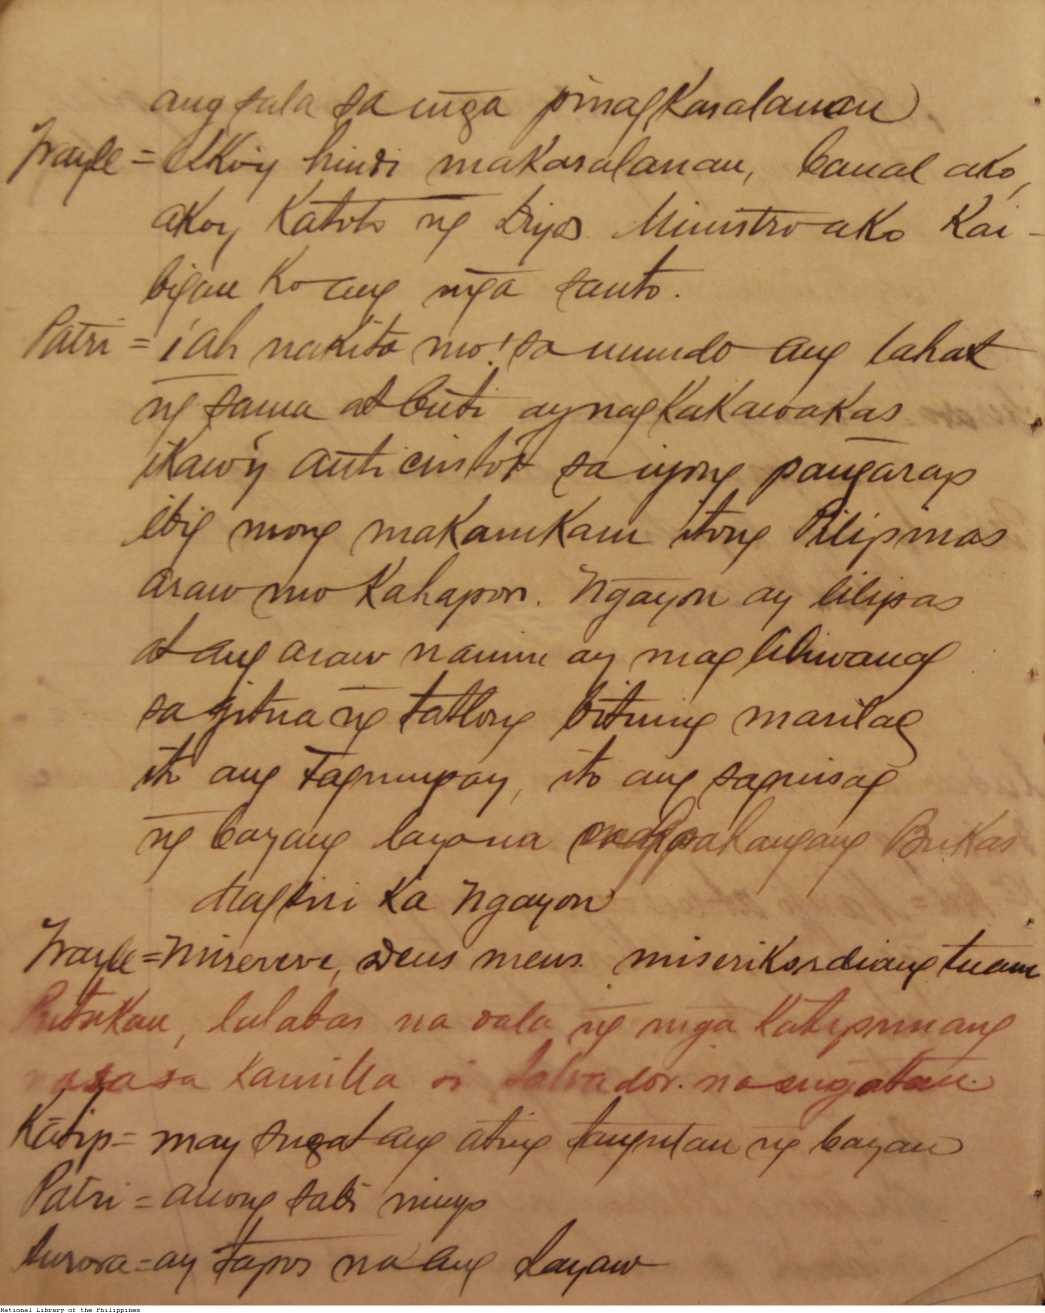 ang sala sa mga pinagkasalanan
Frayle = Ako'y hindi makasalanan, banal ako,
akoy Katoto ng Diyos. Ministro ako Kai-
bigan Ko ang mga santo.
Patri = ¡ah nakita mo! sa mundo ang lahat
ng sama at buti ay nagkakawakas
ikaw'y anti cristo't sa iyong pangarap
ibig mong makamkam itong Pilipinas
araw mo Kahapon. Ngayon ay lilipas
at ang araw namin ay magliliwanag
sa gitna ng tatlong bituing marilag
ito ang tagumpay, ito ang sagisag
ng bayang laya na Bukas
Magsisi Ka Ngayon
Frayle = Miserere, Deus meus. miserikordiang tuam
Putukan, lalabas na dala ng mga Katipunang
nasa sa Kamilla si Salvador. na sugatan.
Katip = may sugat ang ating tangulan ng bayan
Patri = anong sabi ninyo
Aurora = ay tapos na ang Layaw
National Library of the Philippines